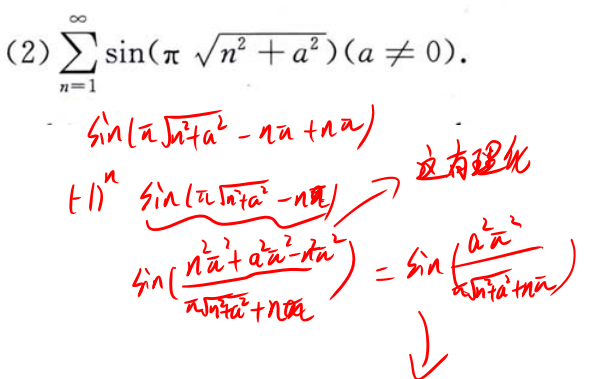 (2) ∑_{n=1}^{∞} sin(π √(n² + a²))(a ≠ 0).
sin(π√(n²+a²) - nπ + nπ)
(-1)ⁿ sin(π√(n²+a²) - nπ) → 这有理化
sin((n²π² + a²π² - n²π²)/(π√(n²+a²) + nπ)) = sin(a²π²/(π√(n²+a²) + nπ))